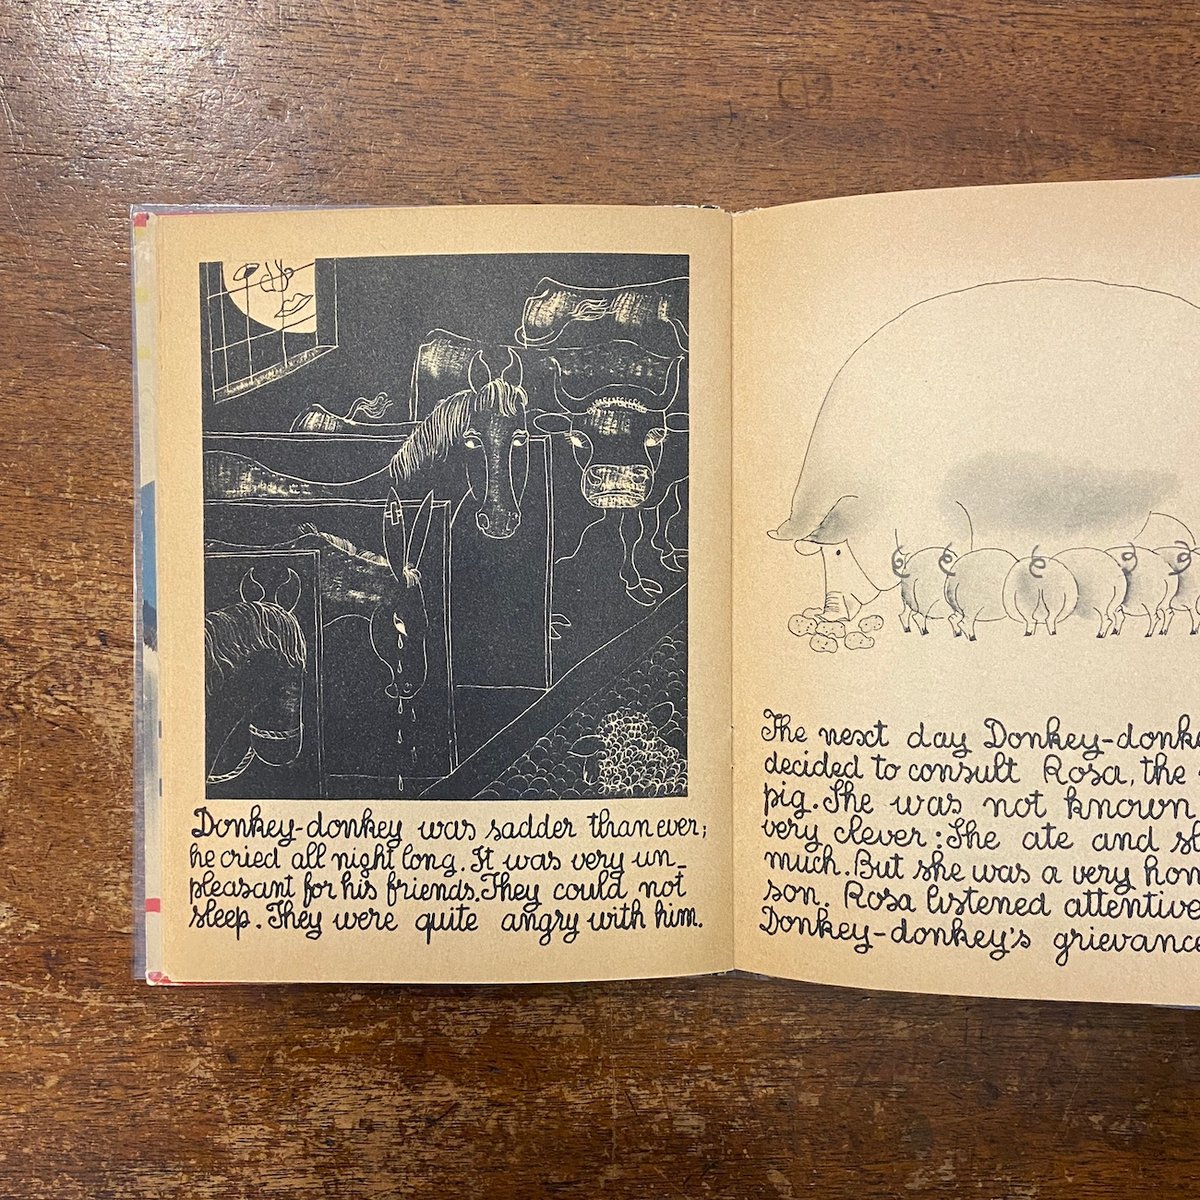 Donkey-donkey was sadder than ever;
he cried all night long. It was very un-
pleasant for his friends. They could not
sleep. They were quite angry with him.
The next day Donkey-donke
decided to consult Rosa, the
pig. She was not known
very clever: She ate and sl
much. But she was a very hon
son. Rosa listened attentive
Donkey-donkey's grievance